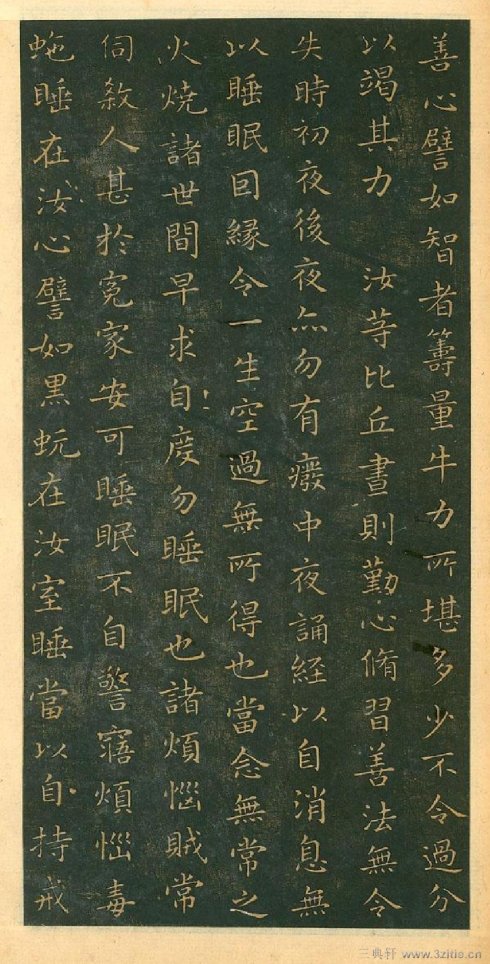 善心譬如智者籌量牛力所堪多少不令過分
以竭其力 汝等比丘晝則勤心脩習善法無令
失時初夜後夜亦勿有癈中夜誦經以自消息無
以睡眠囙緣令一生空過無所得也當念無常之
火燒諸世間早求自度勿睡眠也諸煩惱賊常
伺煞人甚於寃家安可睡眠不自警寤煩惱毒
虵睡在汝心譬如黑蚖在汝室睡當以自持戒
三典轩 www.3zitie.cn